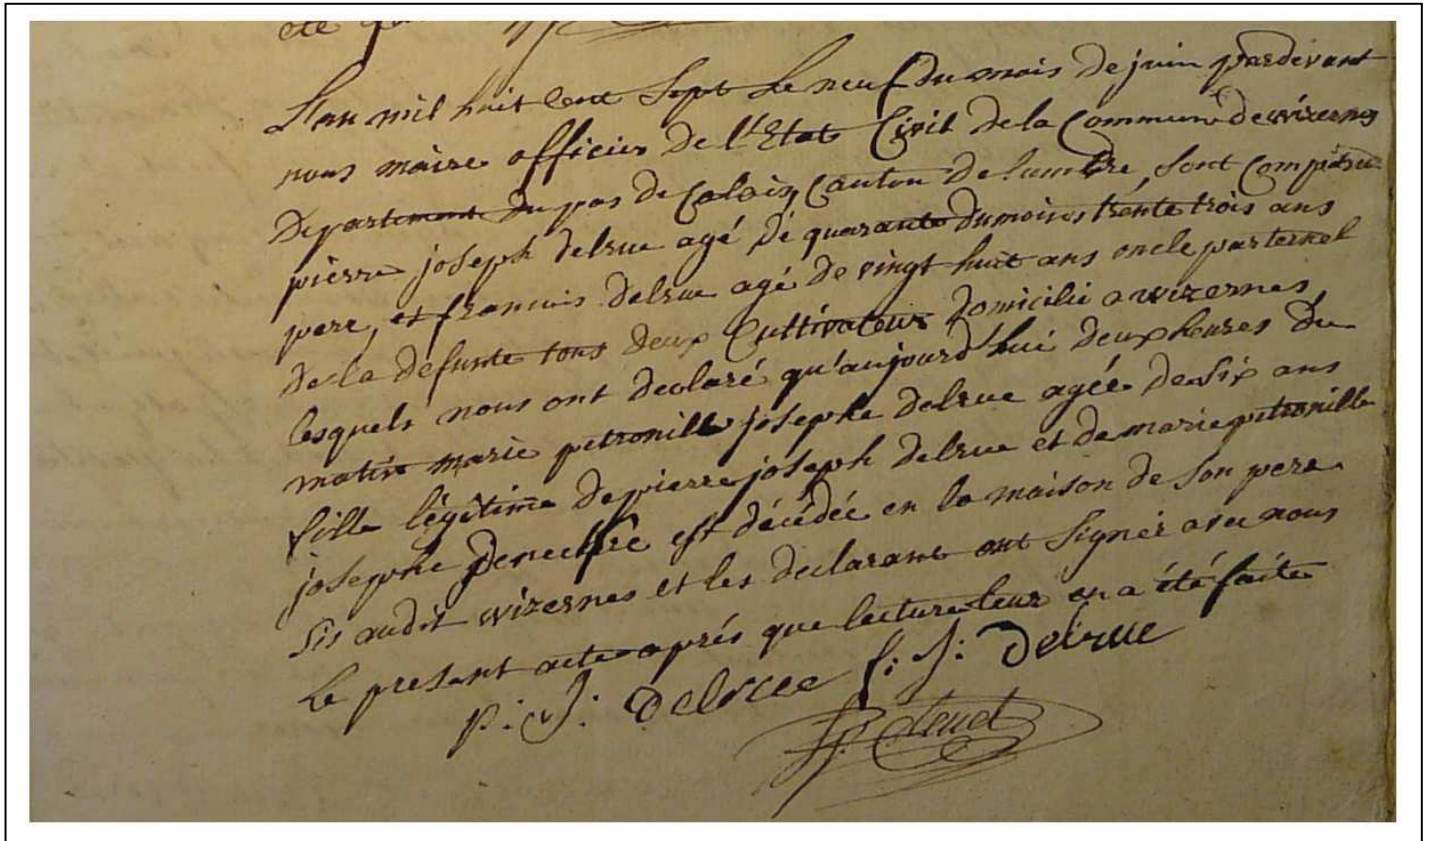 été
L'an mil huit cent Sept le neuf du mois de juin pardevant
nous maire officier de l'Etat Civil de la Commune de wizernes
Departement du pas de Calais, Canton de lumbre, sont comparu
pierre joseph delrue agé de quarante du moins trente trois ans
pere, et francois delrue agé de vingt huit ans oncle parternel
de la defunte tous deux Cultivateur domicilié a wizernes,
lesquels nous ont declaré qu'aujourd'hui deux heures du
matin marie petronille josephe delrue agée de six ans
fille légitime de pierre joseph delrue et de marie petronille
josephe est décédée en la maison de son pere
sis audit wizernes et les declarant ont signés avec nous
le present acte après que lecture leur en a été faite
p: J: delrue f: J: delrue